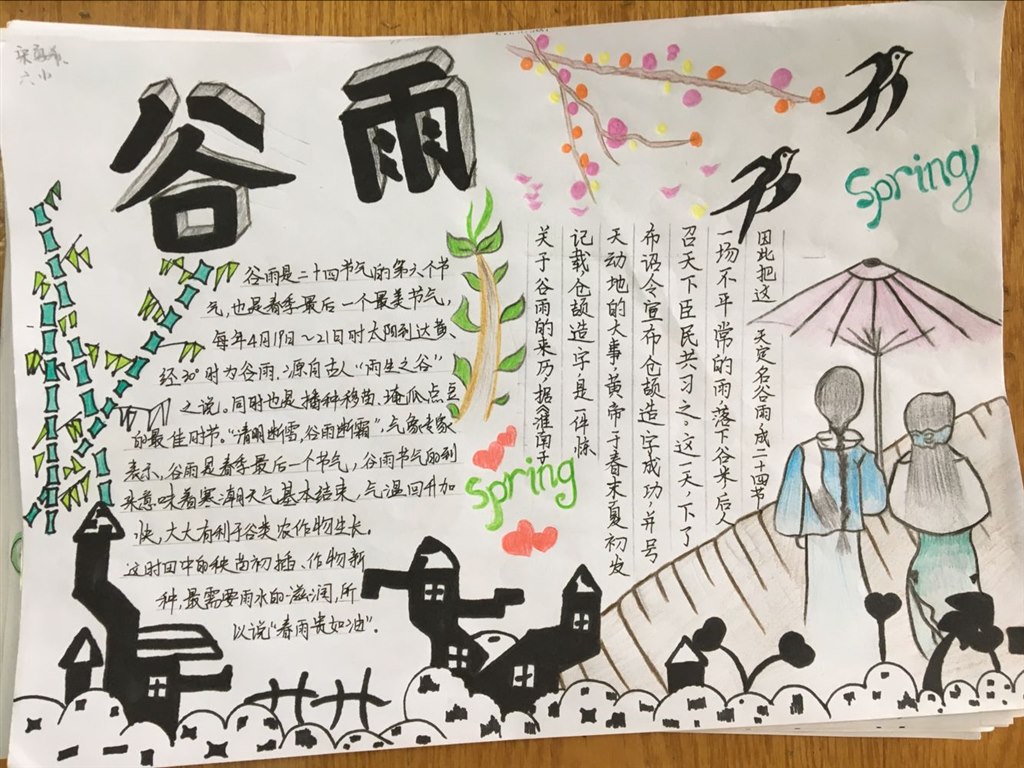 六小
谷雨
谷雨是二十四节气的第六个节
气,也是春季最后一个最美节气,
每年4月19日~21日时太阳到达黄
经30°时为谷雨,源自古人“雨生之谷”
之说。同时也是播种移苗、埯瓜点豆
的最佳时节。“清明断雪,谷雨断霜”,气象专家
表示,谷雨是春季最后一个节气,谷雨节气的到
来意味着寒潮天气基本结束,气温回升加
快,大大有利于谷类农作物生长。
这时田中的秧苗初插、作物新
种,最需要雨水的滋润,所
以说“春雨贵如油”.
spring
spring
关于谷雨的来历,据《淮南子》
记载仓颉造字,是一件惊
天动地的大事,黄帝于春末夏初发
布诏令宣布仓颉造字成功,并号
召天下臣民共习之。这一天,下了
一场不平常的雨,落下谷米,后人
因此把这天定名谷雨,成二十四节